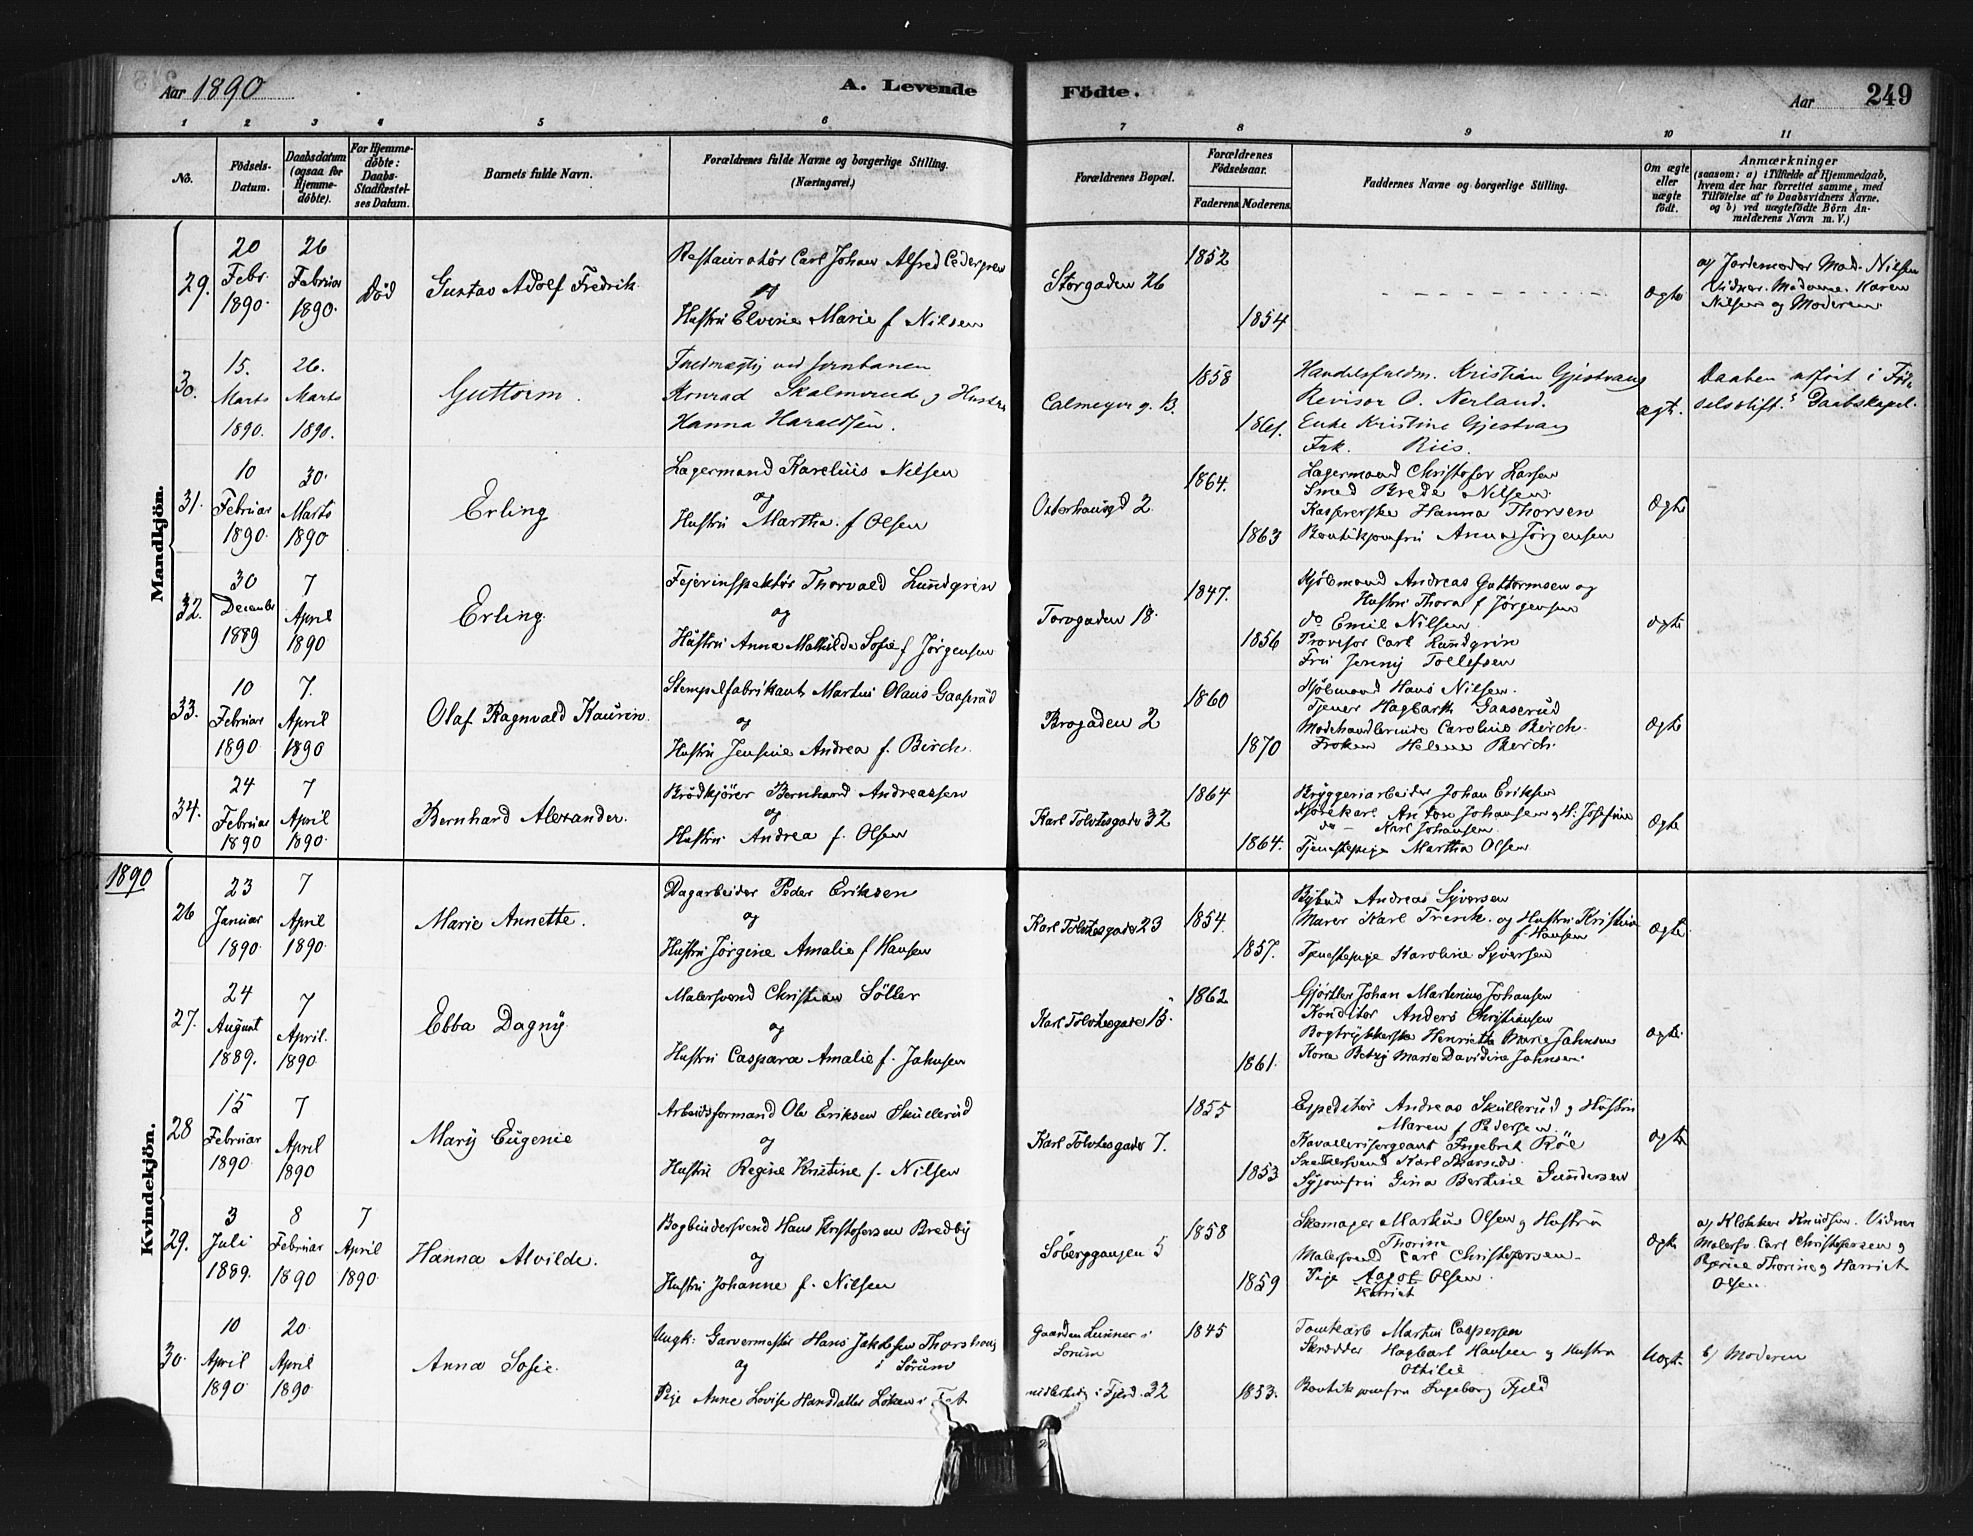 Aar 1890
A. Levende Födte.
Aar
249
1 2 3 4 5 6 7 8 9 10 11
No.
Födsels-Datum.
Daabsdatum (ogsaa for Hjemme-döbte).
For Hjemme-döbte: Daabs-Stadfæstel-ses Datum.
Barnets fulde Navn.
Forældrenes fulde Navne og borgerlige Stilling. (Næringsvei.)
Forældrenes Bopæl.
Forældrenes Födselsaar.
Faderens. Moderens.
Faddernes Navne og borgerlige Stilling.
Om ægte eller uægte födt.
Anmærkninger
(saasom: a) i Tilfælde af Hjemmedaab,
hvem der har forrettet samme, med
Tilföielse af to Daabsvidners Navne,
og b) ved uægtefödte Börn An-
melderens Navn m. V.)
Mandkjön.
29.
20 Febr. 1890.
26 Februar 1890.
Död
Gustav Adolf Fredrik
Restauratör Carl Johan Alfred Cedergren
og
Hustru Elvine Marie f Nilsen
Storgaden 26
1852
1854
ægte
a) Jordemoder Mad. Nilsen
Vidner. Madame. Karen
Nilsen og Moderen
30.
15. Marts 1890.
26. Marts 1890.
Guttorm.
Fuldmægtig ved Jernbanen
Konrad Skalmerud og Hustru
Hanna Haraldsen.
Calmeyer g. 13.
1858
1861.
Handelsfuldm. Kristian Gjestvang
Revisor O. Nerland.
Enke Kristine Gjestvang
Frk. Riis.
ægte.
Daaben udført i Fød-
selsstift.s Daabskapel.
31.
10 Februar 1890.
30. Marts 1890
Erling
Lagermand Karelius Nilsen
og
Hustru Martha. f Olsen
Osterhausgd 2
1864.
1863
Lagermand Christofer Larsen
Smed Brede Nilsen.
Kasererske Hanna Thorsen
Boutikjomfru Anna Jørgensen
Ægte
32.
30 December 1889
7 April 1890
Erling
Fejerinspektör Thorvald Lundgren
og
Hustru Anna Mathilde Sofie f Jörgensen
Torvgaden 18.
1847.
1856
Kjöbmand Andreas Guttormsen og
Hustru Thora f Jörgensen
do Emil Nilsen
Provisor Carl Lundgren
Fru Jenny Tollefsen
ægte
33.
10 Februar 1890.
7. April 1890
Olaf Ragnvald Kaurin.
Stempelfabrikant Martin Olaus Gaaserud
og
Hustru Jensine Andrea f. Birch.
Brogaden 2
1860
1870
Kjöbmand Hans Nilsen.
Tjener Hagbarth Gaaserud
Modehandlerinde Caroline Birch.
Frøken Helene Birch.
Ægte
34.
24 Februar 1890
7 April 1890.
Bernhard Alexander.
Brödkjörer Bernhard Andreassen
og
Hustru Andrea f. Olsen
Karl Tolvtesgade 32
1864
1864.
Bryggeriarbeider Johan Eriksen
Kjörekarl Anton Johansen og H. Josefine
do — Karl Johansen
Tjenestepige Martha Olsen
Ægte
1890
Kvindekjön.
26
23 Januar 1890
7 April 1890.
Marie Annette.
Dagarbeider Peder Eriksen
og
Hustru Jörgine Amalie f Hansen
Karl Tolvtesgade 23
1854.
1857.
Bybud Andreas Syversen
Murer Karl Trenk. og Hustru Kristine
f. Hansen
Tjenestepige Karoline Syversen
Ægte
27.
24 August 1889.
7 April. 1890
Ebba Dagny
Malersvend Christian Söller
og
Hustru Caspara Amalie f. Jahnsen
Karl Tolvtesgade 15.
1862.
1861.
Gjörtler Johan Martinius Johansen
Konditor Anders Christiansen
Bogtrykkerske Henriette Marie Jahnsen
Kone Betsy Marie Davidine Jahnsen
ægte
28
15 Februar 1890.
7 April 1890
Mary Eugenie
Arbeidsformand Ole Eriksen Skullerud
og
Hustru Regine Kristine f. Nilsen
Karl Tolvtesgade 7.
1855
1853
Expeditör Andreas Skullerud og Hustru
Maren f Pedersen
Kavallerisergeant Ingebret Röe
Snedkersvend Karl
Syjomfru Gina Bertine Gundersen
ægte
29.
3 Juli 1889.
8 Februar 1890
7 April 1890.
Hanna Alvilde.
Bogbindersvend Hans Kristofersen Bredby
og
Hustru Johanne f. Nilsen
Söberggangen 5
1858
1859
Skomager Markus Olsen og Hustru
Thorine
Malersvend Carl Christofersen
Pige Aagot Olsen.
Harriet
Ægte
a) Klokker Knudsen. Vidner
Malersv. Carl Christofersen og
Pigerne Thorine og Harriet
Olsen
30.
10 April 1890
20 April 1890.
Anna Sofie.
Ungk: Garvermester Hans Jakobsen Thorshoug
og i Sörum
Pige Anne Lovise Hansdatter Löken i Fet
Gaarden Lunner i
Sörum
midlertidig i Fjerd. 32
1845
1853.
Tomtekarl Martin Caspersen
Skrædder Hagbart Hansen og Hustru
Othilie
Boutikjomfru Ingeborg Fjeld
Uægte
b) Moderen